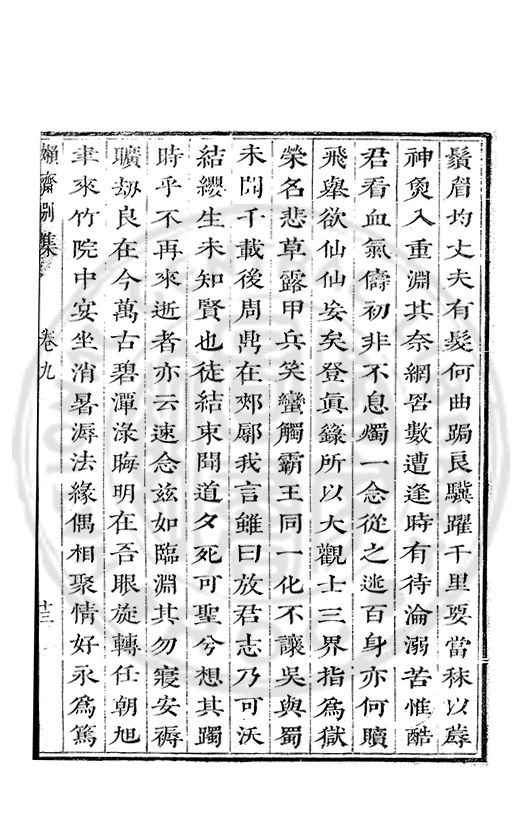 鬚眉均丈夫有髮何曲跼良驥躍千里要當秣以蓐
神入重淵其奈網罟數遭逢時有待淪溺苦惟酷
君看血氣儔初非不息燭一念從之迷百身亦何贖
飛舉欲仙仙妄矣登眞籙所以大觀士三界指為獄
榮名悲草露甲兵笑蠻觸霸王同一化不讓吳與蜀
未問千載後周鼎在郟鄏我言雖曰放君志乃可沃
結纓生未知賢也徒結束聞道夕死可聖兮想其躅
時乎不再來逝者亦云速念茲如臨淵其勿寢安褥
曠劫良在今萬古碧潭淥晦明在吾眼旋轉任朝旭
聿來竹院中宴坐消暑溽法緣偶相聚情好永為篤
嬾齋別集 卷九 十三